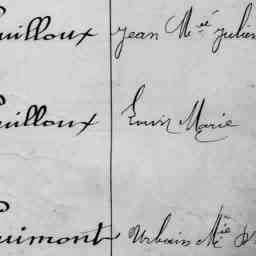 uilloux Jean M^ie Julien
uilloux Louis Marie
uimont Urbain M^ie